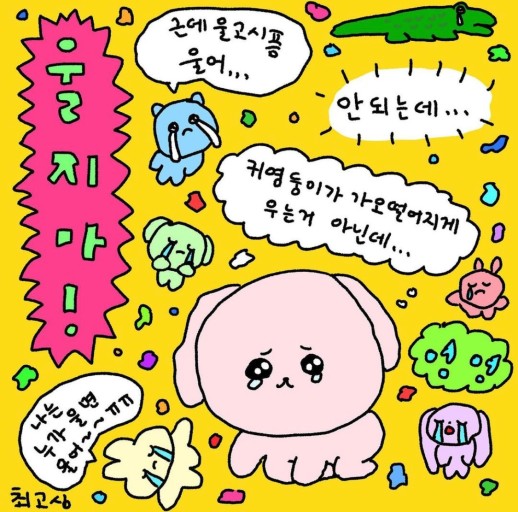 울지마!
근데 울고시픔
울어...
안 되는데...
귀염둥이가 가오떨어지게
우는거 아닌데...
나는 울면
최고심